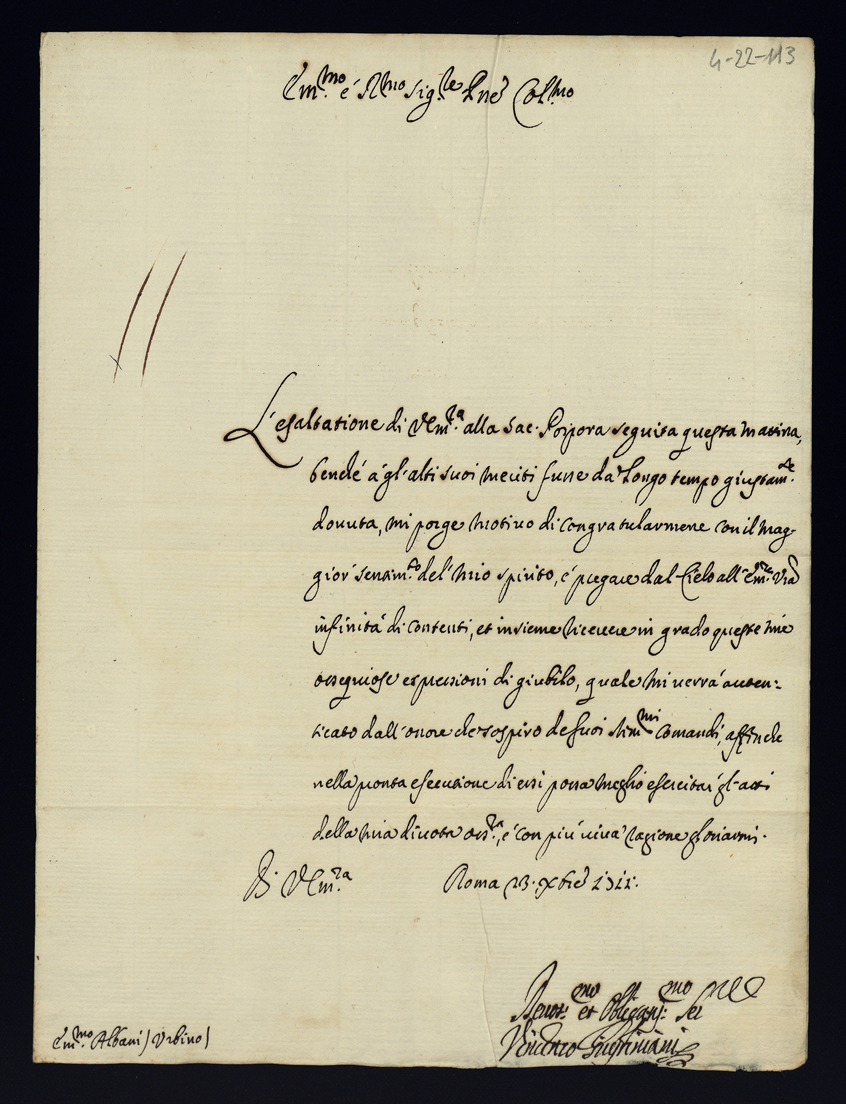 4-22-113
Em.mo é R.mo Sig.re Pne Col.mo
L'esaltatione di VEm.za alla Sac. Porpora seguita questa matina,
benché à gl'alti suoi meriti fusse da longo tempo giustam.te
douuta, mi porge motiuo di congratularmene con il mag-
gior sentim.to del mio spirito, é pregare dal Cielo all' Em.za Vra
infinità di contenti, et insieme riceuere in grado queste mie
ossequiose espressioni di giubilo, quale mi uerrà auten-
ticato dall'onore che sospiro de suoi stim.mi comandi, affinche
nella pronta esecutione di essi possa meglio esercitar gl'atti
della mia diuota oss.za, é con più uiua ragione gloriarmi.
Di VEm.za Roma 23. Xbre 1711.
Deuot.mo et Oblig.mo Ser
Vincenzo Giustiniani
Em.mo Albani / Urbino /